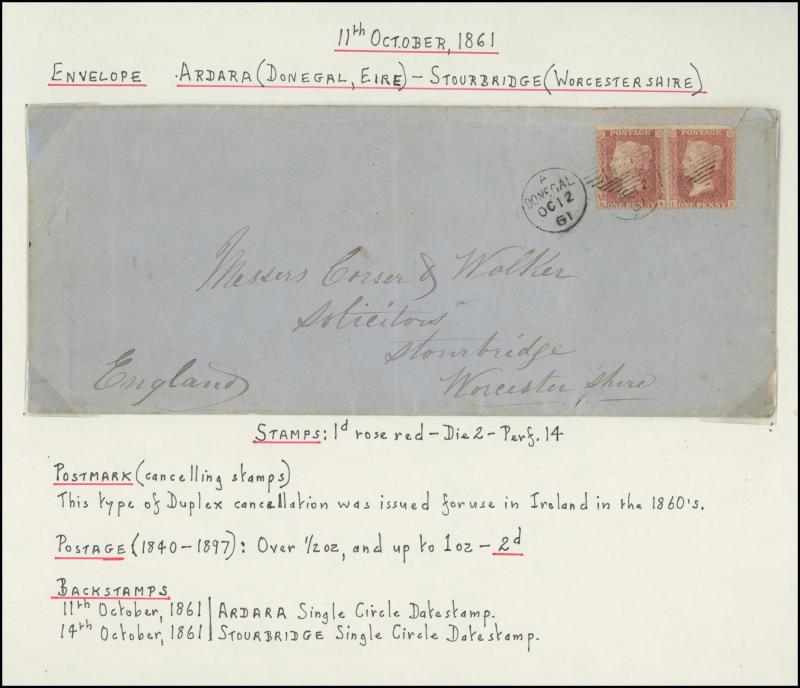 11th OCTOBER, 1861
ENVELOPE ARDARA (DONEGAL, EIRE) – STOURBRIDGE (WORCESTERSHIRE)
POSTAGE POSTAGE
ONE PENNY ONE PENNY
A
DONEGAL
OC 12
61
Messers Corser & Walker
Solicitors
Stourbridge
England
Worcester shire
STAMPS: 1d rose red – Die 2 – Perf. 14
POSTMARK (cancelling stamps)
This type of Duplex cancellation was issued for use in Ireland in the 1860's.
POSTAGE (1840 – 1897): Over 1/2 oz, and up to 1 oz – 2d
BACKSTAMPS
11th October, 1861 | ARDARA Single Circle Datestamp.
14th October, 1861 | STOURBRIDGE Single Circle Datestamp.